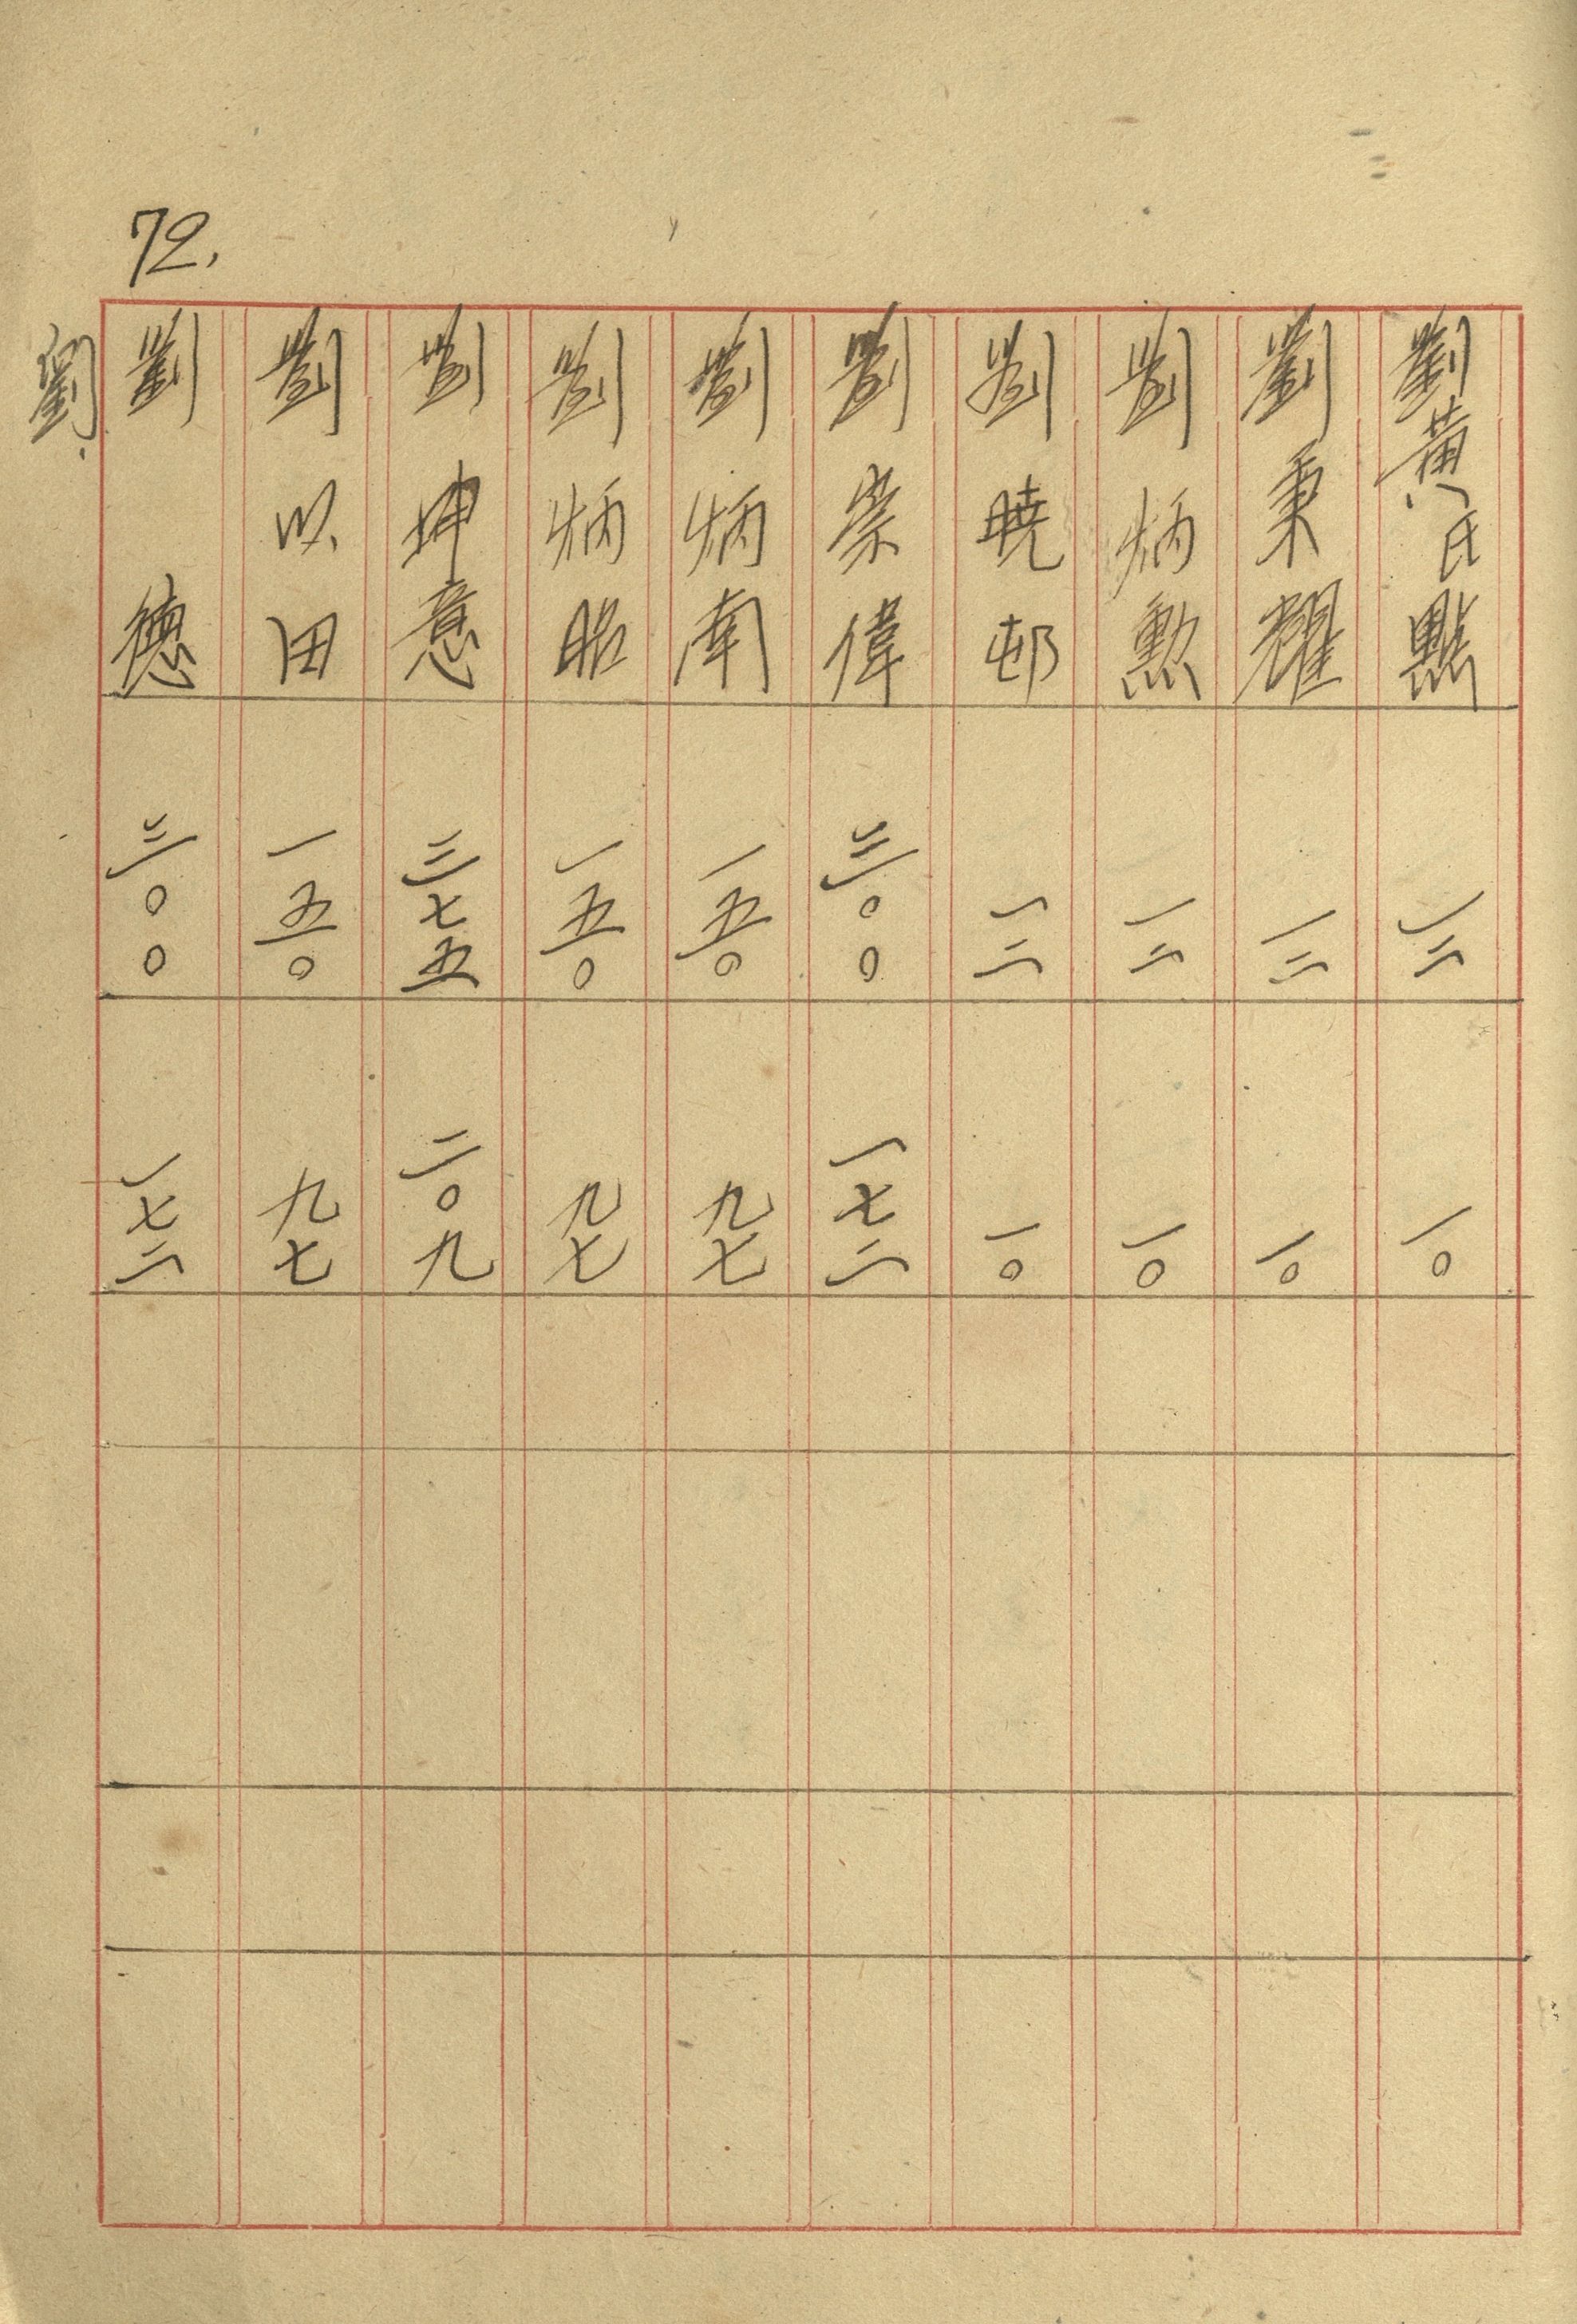 72.
劉黃氏點 一二 一〇
劉秉耀 一二 一〇
劉炳勲 一二 一〇
劉曉邨 一二 一〇
劉崇偉 三〇〇 一七二
劉炳南 一五〇 九七
劉炳昭 一五〇 九七
劉坤意 三七五 二〇九
劉以田 一五〇 九七
劉德 三〇〇 一七二
劉